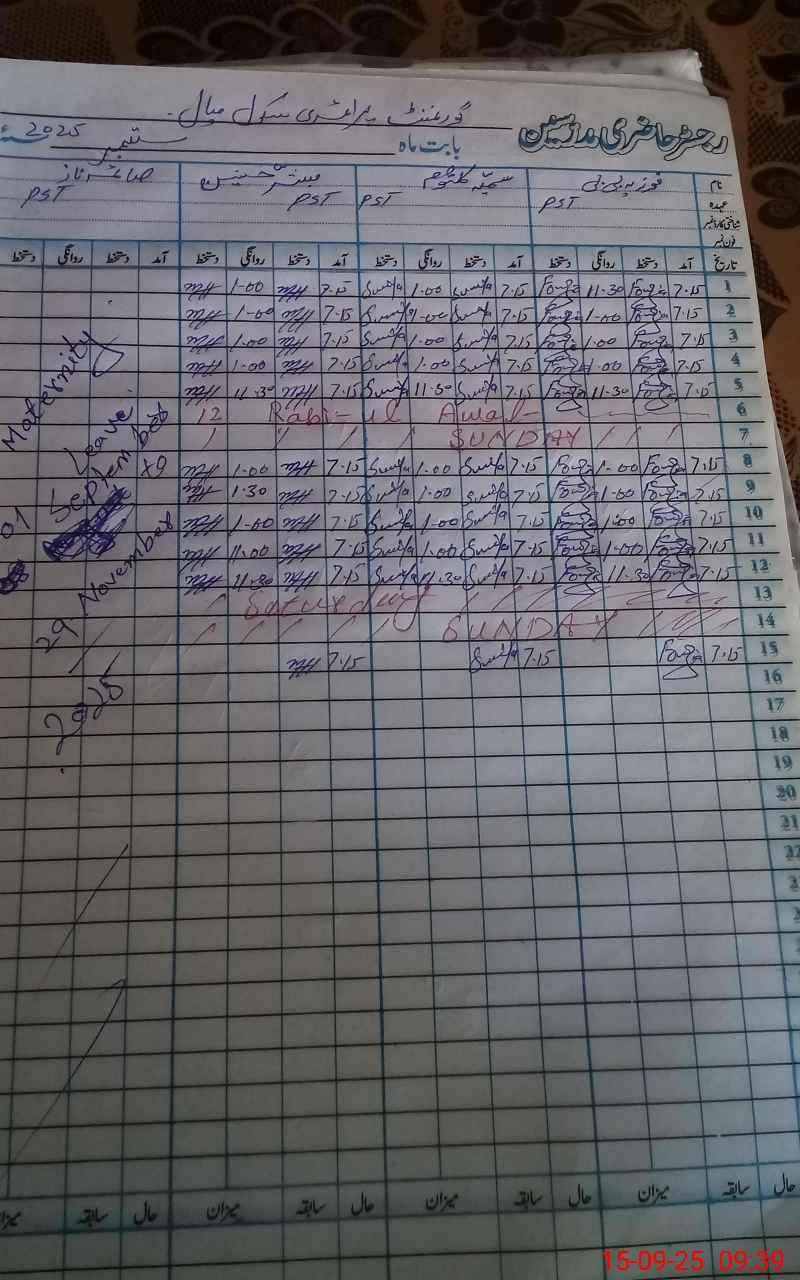 گورنمنٹ پرائمری سکول میال
رجسٹر حاضری مدرسین
بابت ماہ ستمبر 2025
نام فوزیہ بی بی سمیہ کلثوم مبشر حسنین صائمہ ناز
عہدہ PST PST PST PST
شناختی کارڈ نمبر
فون نمبر
تاریخ آمد دستخط روانگی دستخط آمد دستخط روانگی دستخط آمد دستخط روانگی دستخط آمد دستخط روانگی دستخط
1 7.15 Fouzia 11.30 Fouzia 7.15 1.00 7.15 1-00
2 7.15 Fouzia 1-00 Fouzia 7.15 1-00 7.15 1-00
3 7.15 Fouzia 1.00 Fouzia 7.15 1.00 7.15 1.00
4 7.15 Fouzia 1.00 Fouzia 7.15 1.00 7.15 1.00
5 7.15 Fouzia 11.30 Fouzia 7.15 11.30 7.15 11.30
6 12 Rabi-ul Awal
7 SUNDAY
8 7.15 Fouzia 1-00 Fouzia 7.15 1.00 7.15 1-00
9 7.15 Fouzia 1-00 Fouzia 7.15 1.00 7.15 1.30
10 7.15 Fouzia 1.00 Fouzia 7.15 1.00 7.15 1-00
11 7.15 Fouzia 1.00 Fouzia 7.15 1.00 7.15 11.00
12 7.15 Fouzia 11.30 Fouzia 7.15 11.30 7.15 11.30
13 Saturday
14 SUNDAY
15 7.15 Fouzia 7.15 7.15
16
17
18
19
20
21
22
Maternity
Leave
01 September to
29 November
2025
حال سابقہ میزان حال سابقہ میزان حال سابقہ میزان حال سابقہ میزان
15-09-25 09:39